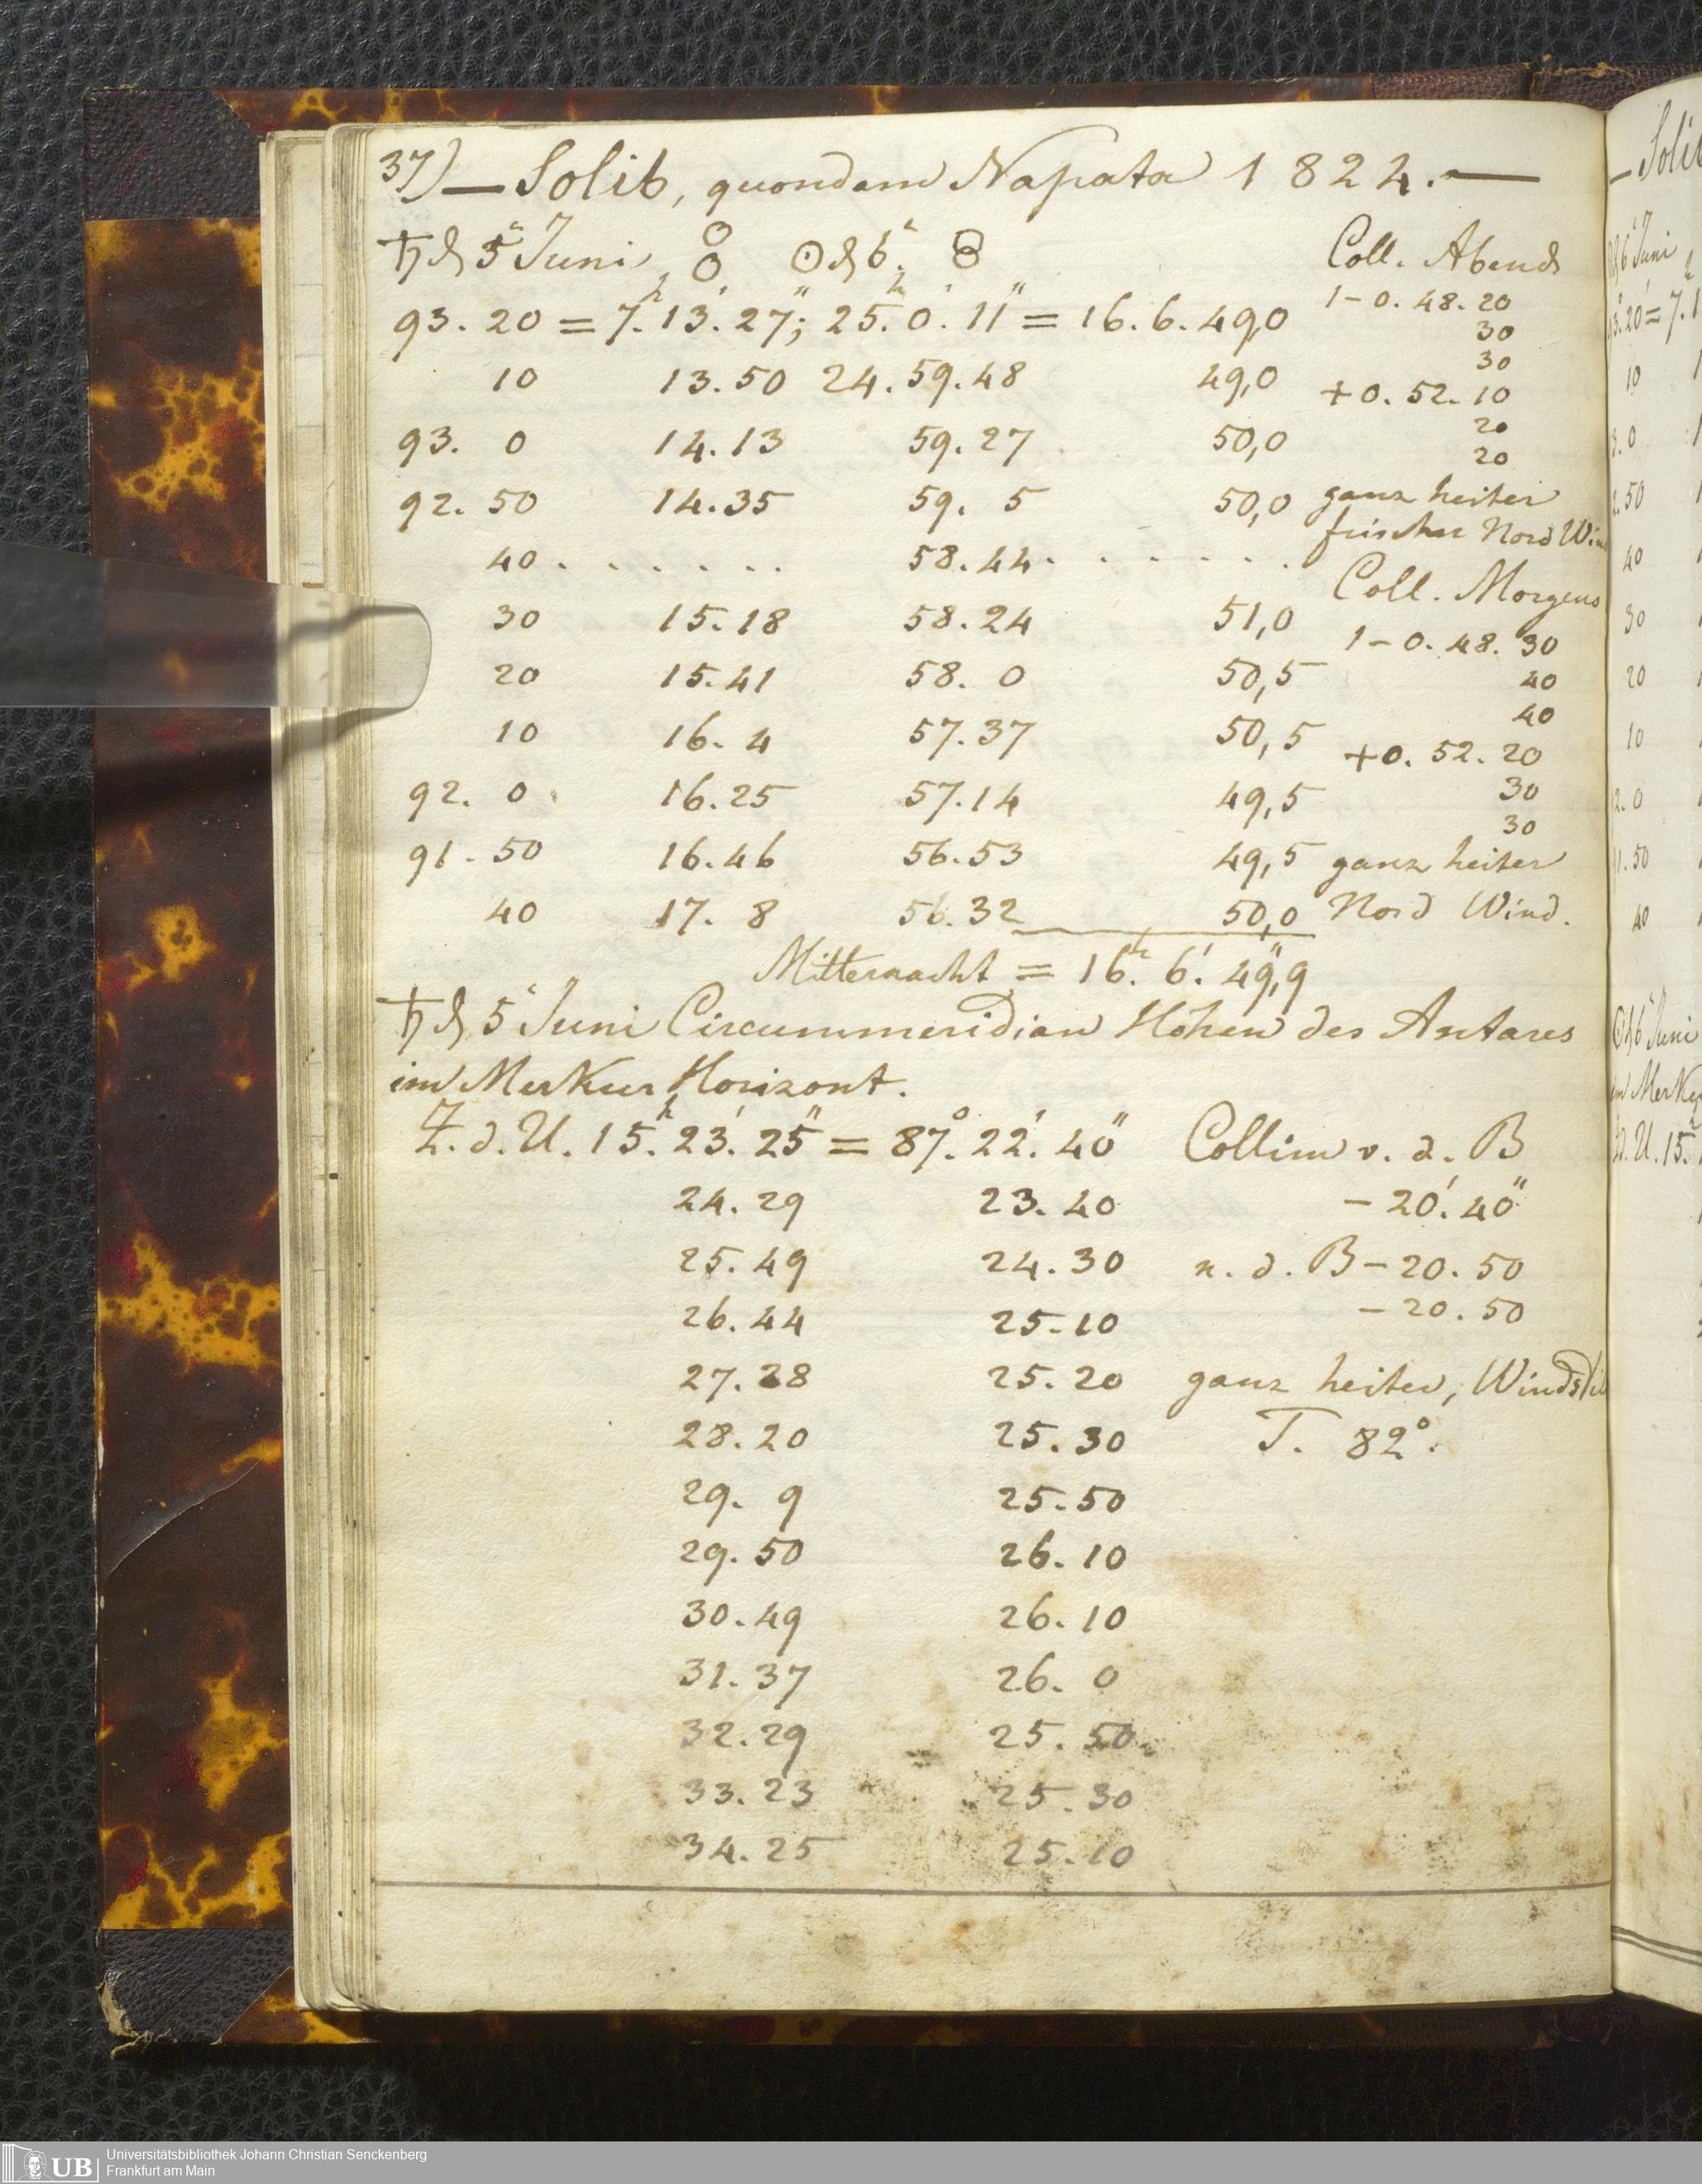 37) — Solib, quondam Napata 1824. —
♄ d 5t Juni ☉ d 6t
Coll. Abends
93. 20 = 7h. 13'. 27"; 25h. 0'. 11" = 16. 6. 49,0
1 - 0. 48. 20
30
10 13. 50 24. 59. 48 49,0
30
+ 0. 52. 10
93. 0 14. 13 59. 27 50,0
20
20
92. 50 14. 35 59. 5 50,0
ganz heiter
frischer Nord Win
40 . . . . . . 58. 44 . . . . . .
Coll. Morgens
30 15. 18 58. 24 51,0
1 - 0. 48. 30
20 15. 41 58. 0 50,5
40
40
10 16. 4 57. 37 50,5
+ 0. 52. 20
92. 0 16. 25 57. 14 49,5
30
30
91. 50 16. 46 56. 53 49,5
ganz heiter
40 17. 8 56. 32 50,0
Nord Wind.
Mitternacht = 16h. 6'. 49",9
♄ d 5t Juni Circummeridian Höhen des Antares
im Merkur Horizont.
Z. d. U. 15h. 23'. 25" = 87°. 22'. 40" Collim v. d. B
24. 29 23. 40 - 20'. 40"
25. 49 24. 30 n. d. B - 20. 50
26. 44 25. 10 - 20. 50
27. 28 25. 20 ganz heiter,
28. 20 25. 30 T. 82°.
29. 9 25. 50
29. 50 26. 10
30. 49 26. 10
31. 37 26. 0
32. 29 25. 50
33. 23 25. 30
34. 25 25. 10
— Solib
6t Juni
13. 20 = 7. 1
10
3. 0
2. 50
40
30
20
10
2. 0
1. 50
40
☉ d 6t Juni
d. U. 15.
UB
Universitätsbibliothek Johann Christian Senckenberg
Frankfurt am Main